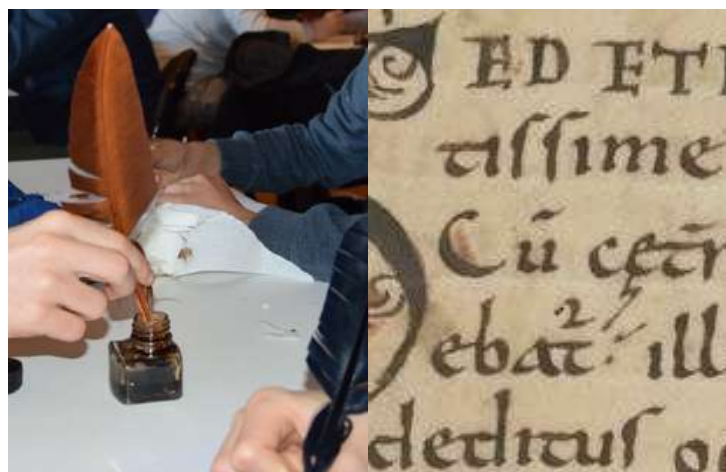 ED ET
tissime
Cū cęt̄
ebat̄ ill
deditus